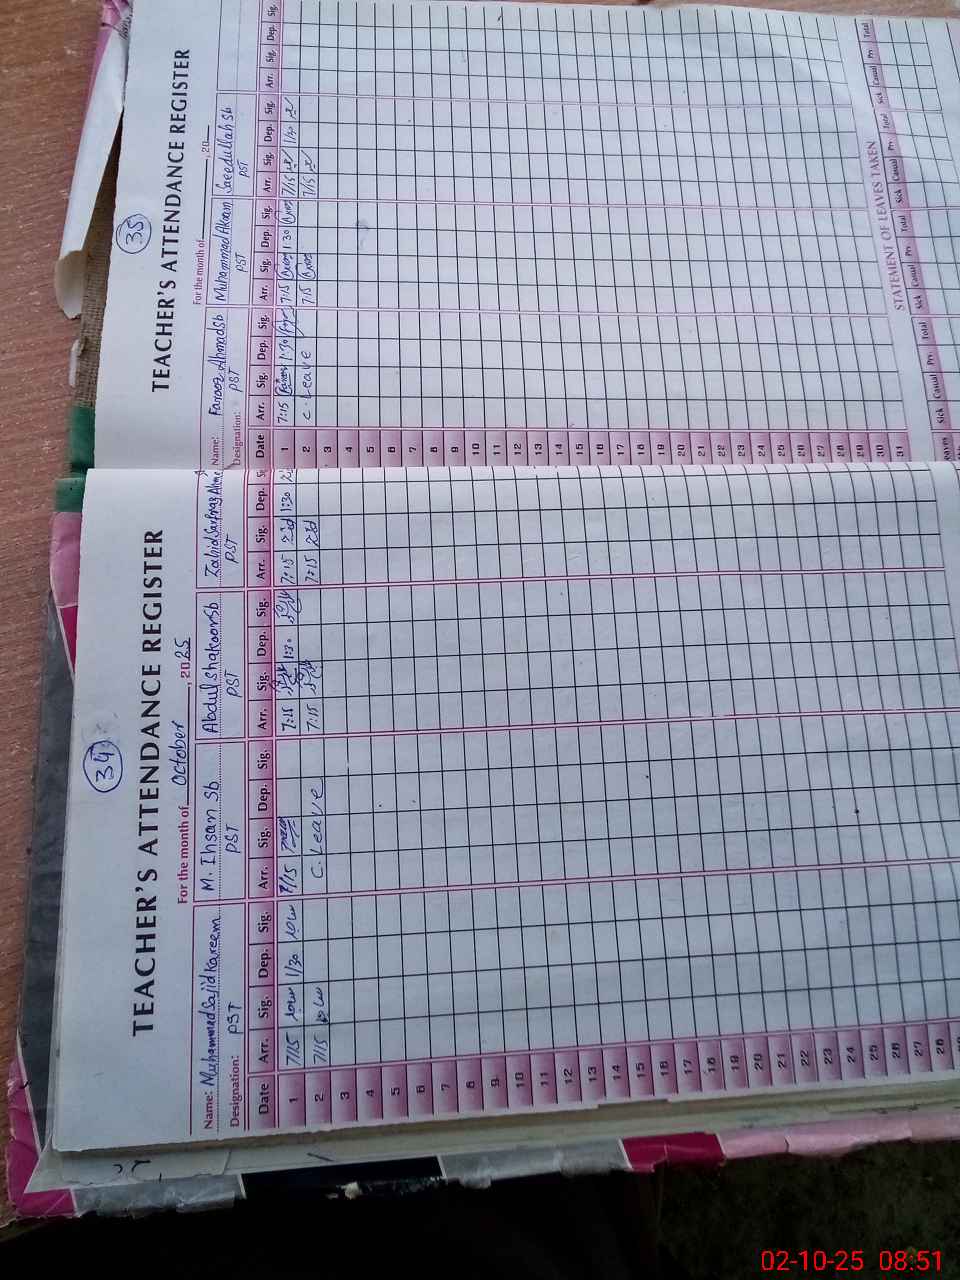 34
TEACHER'S ATTENDANCE REGISTER
For the month of October, 2025
Name: Muhammad Sajid Kareem M. Ihsan Sb Abdul Shakoor Sb Zahid Sarfraz
Designation: PST PST PST PST
Date Arr. Sig. Dep. Sig. Arr. Sig. Dep. Sig. Arr. Sig. Dep. Sig. Arr. Sig. Dep.
1 7/15 1/30 7/15 7:15 1:30 7:15 1:30
2 7/15 C. Leave 7:15 7:15
3
4
5
6
7
8
9
10
11
12
13
14
15
16
17
18
19
20
21
22
23
24
25
26
27
28
35
TEACHER'S ATTENDANCE REGISTER
For the month of , 20
Name: Farooq Ahmad Sb Muhammad Akram Saeedullah Sb
Designation: PST PST PST
Date Arr. Sig. Dep. Sig. Arr. Sig. Dep. Sig. Arr. Sig. Dep. Sig. Arr. Sig. Dep. Sig.
1 7:15 1:30 7:15 1:30 7/15 1/30
2 C. Leave 7:15 7/15
3
4
5
6
7
8
9
10
11
12
13
14
15
16
17
18
19
20
21
22
23
24
25
26
27
28
29
30
31
STATEMENT OF LEAVES TAKEN
Sick Casual Prv. Total Sick Casual Prv. Total Sick Casual Prv. Total Sick Casual Prv. Total
02-10-25 08:51